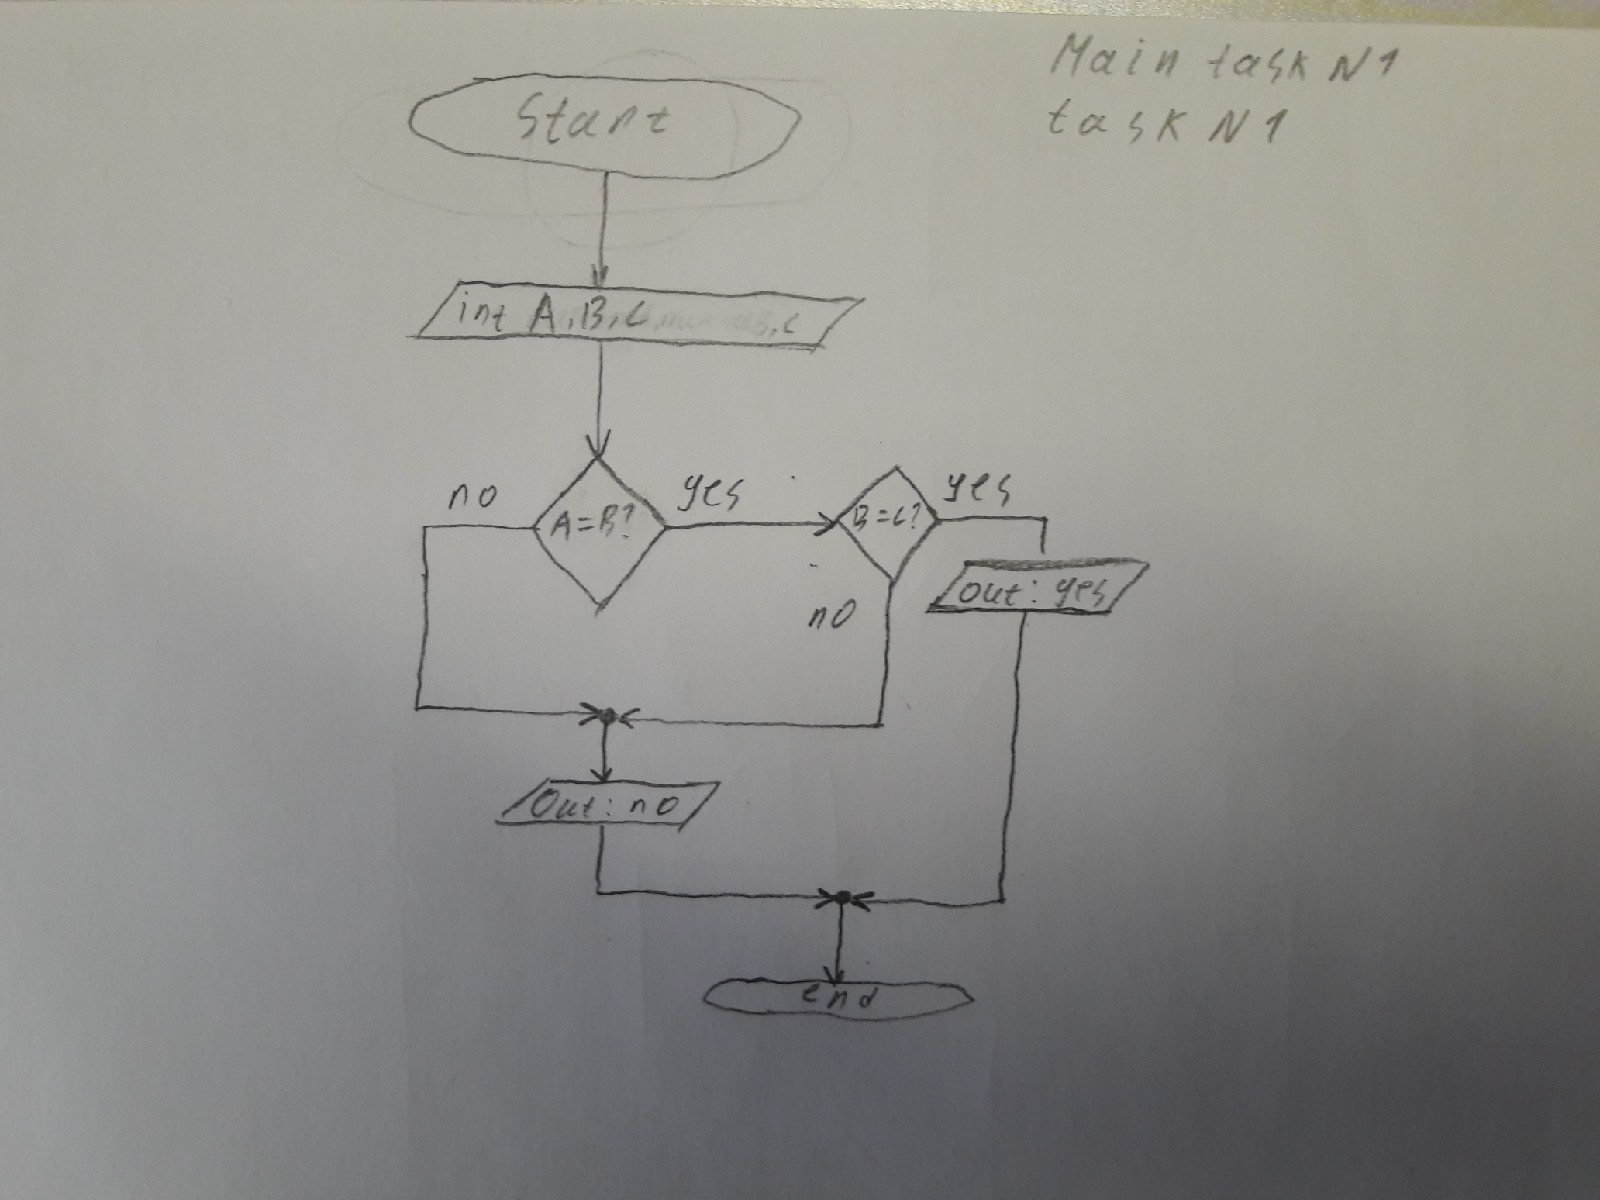 Main task N1
task N1
Start
int A,B,C
no
A=B?
yes
B=C?
yes
no
out: yes
Out: no
end